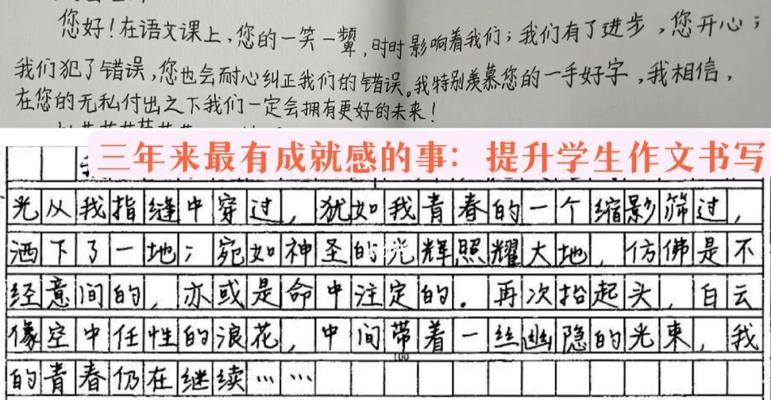 您好！在语文课上，您的一笑一颦，时时影响着我们；我们有了进步，您开心；
我们犯了错误，您也会耐心纠正我们的错误。我特别羡慕您的一手好字，我相信，
在您的无私付出之下我们一定会拥有更好的未来！
三年来最有成就感的事：提升学生作文书写
光从我指缝中穿过，犹如我青春的一个缩影筛过，
洒下了一地；宛如神圣的光辉照耀大地，仿佛是不
经意间的，亦或是命中注定的。再次抬起头，白云
像空中任性的浪花，中间带着一丝幽隐的光束，我
100
的青春仍在继续……